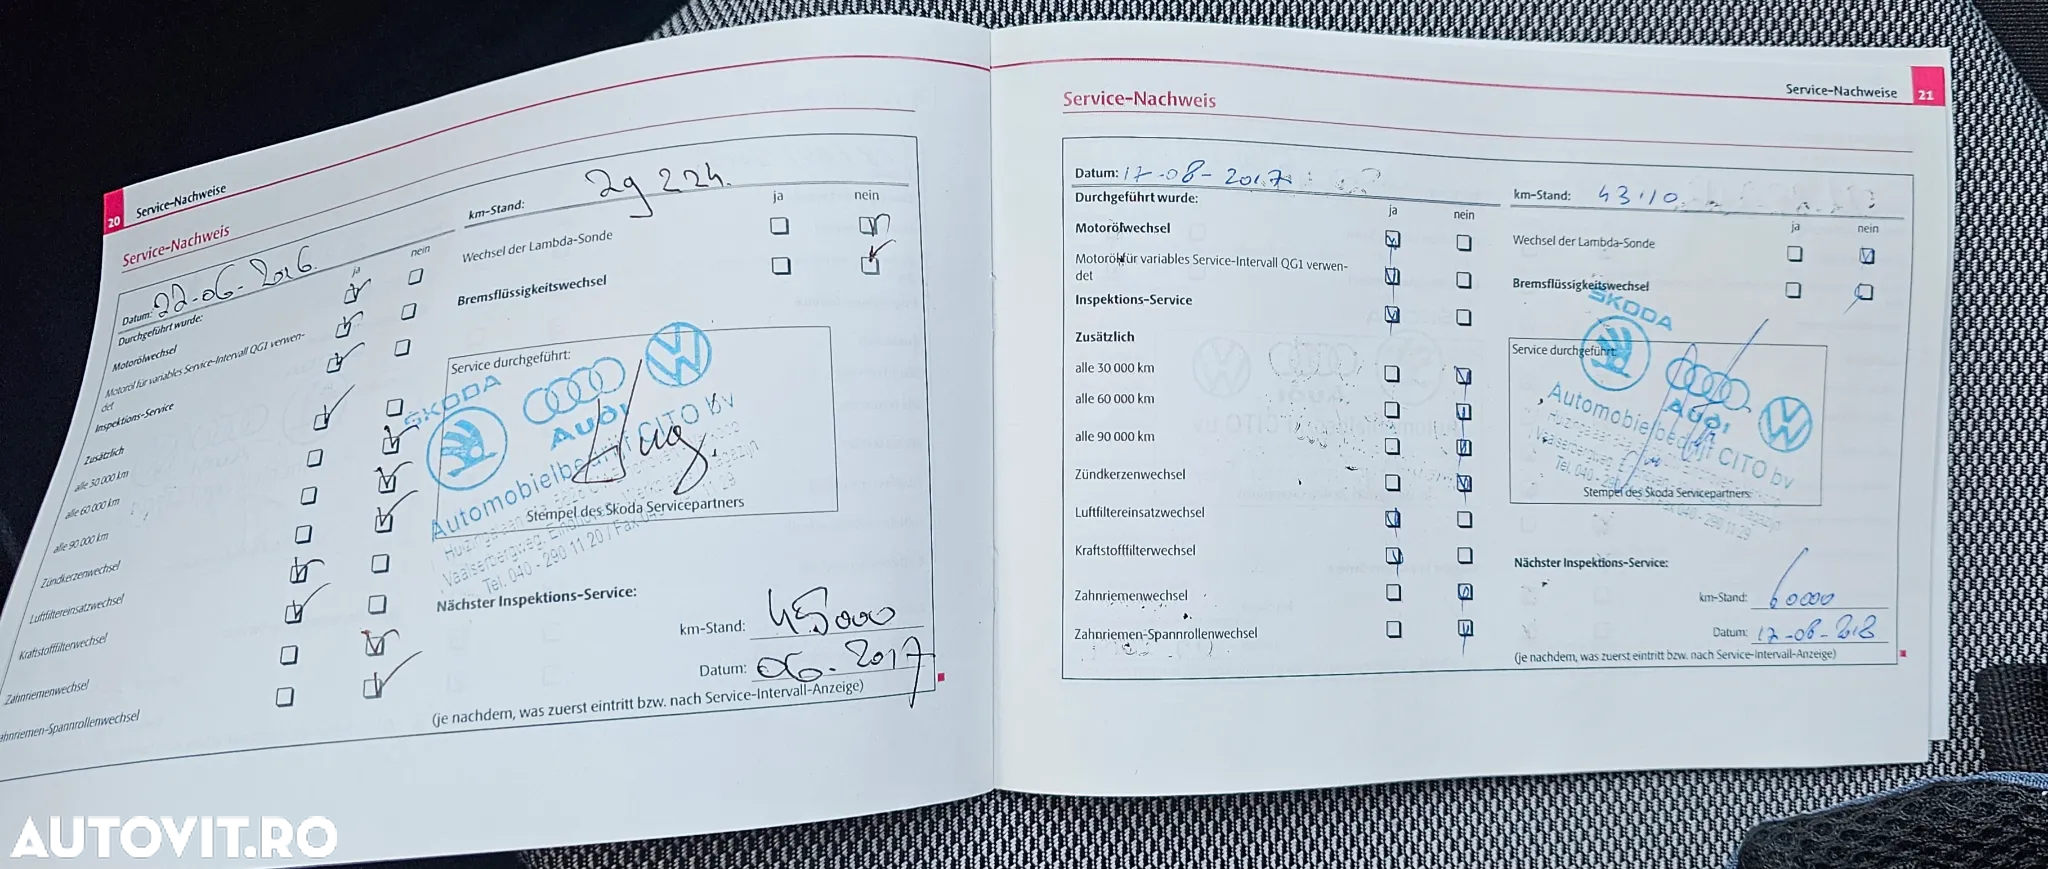 20 Service-Nachweise
Service-Nachweis
Datum: 22-06-2016.
km-Stand: 29 224.
Durchgeführt wurde:
ja nein
Motorölwechsel
Motoröl für variables Service-Intervall QG1 verwen-
det
Inspektions-Service
Zusätzlich
alle 30 000 km
alle 60 000 km
alle 90 000 km
Zündkerzenwechsel
Luftfiltereinsatzwechsel
Kraftstofffilterwechsel
Zahnriemenwechsel
ahnriemen-Spannrollenwechsel
ja nein
Wechsel der Lambda-Sonde
Bremsflüssigkeitswechsel
Service durchgeführt:
ŠKODA
Audi
Automobielbedrijf CITO bv
Tel. 040 - 290 11 20 / Fax 040
Stempel des Skoda Servicepartners
Nächster Inspektions-Service:
km-Stand: 45000
Datum: 06-2017
(je nachdem, was zuerst eintritt bzw. nach Service-Intervall-Anzeige)
Service-Nachweise 21
Service-Nachweis
Datum: 17-08-2017
km-Stand: 43110
Durchgeführt wurde:
ja nein
Motorölwechsel
Motoröl für variables Service-Intervall QG1 verwen-
det
Inspektions-Service
Zusätzlich
alle 30 000 km
alle 60 000 km
alle 90 000 km
Zündkerzenwechsel
Luftfiltereinsatzwechsel
Kraftstofffilterwechsel
Zahnriemenwechsel
Zahnriemen-Spannrollenwechsel
ja nein
Wechsel der Lambda-Sonde
Bremsflüssigkeitswechsel
ŠKODA
Service durchgeführt:
Audi
Automobielbedrijf CITO bv
Stempel des Skoda Servicepartners
Nächster Inspektions-Service:
km-Stand: 60000
Datum: 17-08-2018
(je nachdem, was zuerst eintritt bzw. nach Service-Intervall-Anzeige)
AUTOVIT.RO